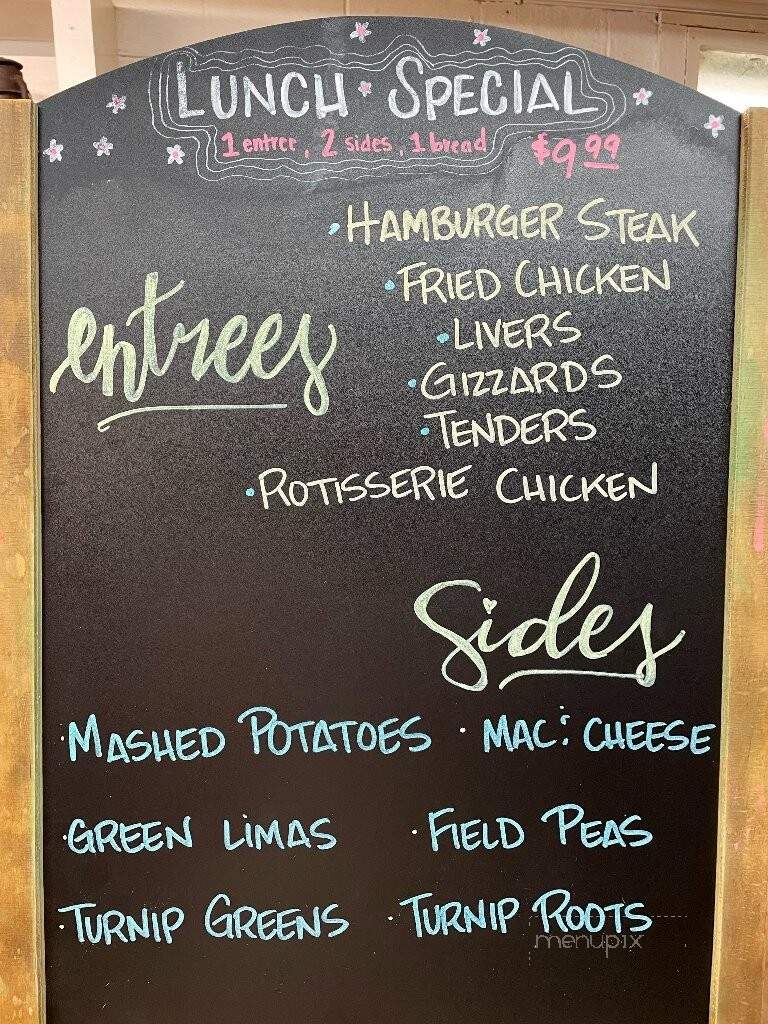 LUNCH SPECIAL
1 entree, 2 sides, 1 bread $9.99
entrees
• HAMBURGER STEAK
• FRIED CHICKEN
• LIVERS
• GIZZARDS
• TENDERS
• ROTISSERIE CHICKEN
Sides
• MASHED POTATOES • MAC : CHEESE
• GREEN LIMAS • FIELD PEAS
• TURNIP GREENS • TURNIP ROOTS
menupix